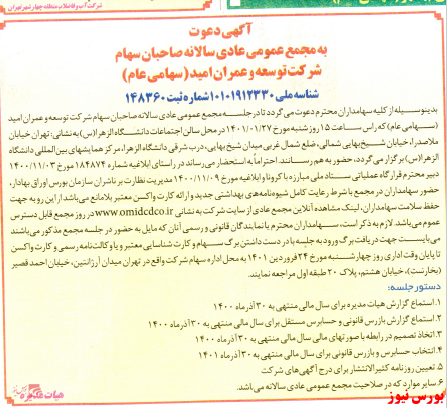 شرکت آب و فاضلاب منطقه چهار شهر تهران
آگهی دعوت
به مجمع عمومی عادی سالانه صاحبان سهام
شرکت توسعه و عمران امید (سهامی عام)
شناسه ملی ۱۰۱۰۱۹۱۲۳۳۰ شماره ثبت ۱۴۸۳۶۰
بدینوسیله از کلیه سهامداران محترم دعوت می‌گردد تا در جلسه مجمع عمومی عادی سالانه صاحبان سهام شرکت توسعه و عمران امید
(سهامی عام) که راس ساعت ۱۵ روز شنبه مورخ ۱۴۰۱/۰۱/۲۷ در محل سالن اجتماعات دانشگاه الزهرا(س) به نشانی: تهران خیابان
ملاصدرا، خیابان شیخ بهایی شمالی، ضلع شمال غربی میدان شیخ بهایی، درب شرقی دانشگاه الزهرا، مرکز همایشهای بین المللی دانشگاه
الزهرا(س) برگزار می‌گردد، حضور به هم رسانند. احتراماً به استحضار می‌رساند در راستای ابلاغیه شماره ۱۸۴۸۷۴ مورخ ۱۴۰۰/۱۱/۰۳
دبیر محترم قرارگاه عملیاتی ستاد ملی مبارزه با کرونا و ابلاغیه مورخ ۱۴۰۰/۱۱/۰۹ مدیریت نظارت بر ناشران سازمان بورس اوراق بهادار،
حضور سهامداران در مجمع با شرط رعایت کامل شیوه‌نامه‌های بهداشتی جدید و ارائه کارت واکسن معتبر بلامانع می‌باشد از این رو به جهت
حفظ سلامت سهامداران، لینک مشاهده آنلاین مجمع عادی از سایت شرکت به نشانی www.omidcdco.ir در روز مجمع قابل دسترس
عموم می‌باشد. لازم به ذکر است، سهامداران محترم یا نمایندگان قانونی و رسمی آنان که مایل به حضور در جلسه مجمع مذکور می‌باشند
می‌بایست جهت دریافت برگ ورود به جلسه با در دست داشتن برگ سهام و کارت شناسایی معتبر و یا وکالت‌نامه رسمی و کارت واکسن
تا پایان وقت اداری روز چهارشنبه مورخ ۲۴ فروردین ۱۴۰۱ به محل اداره سهام شرکت واقع در تهران میدان آرژانتین، خیابان احمد قصیر
(بخارست)، خیابان هشتم، پلاک ۲۰ طبقه اول مراجعه نمایند.
دستور جلسه:
۱. استماع گزارش هیات مدیره برای سال مالی منتهی به ۳۰ آذر ماه ۱۴۰۰
۲. استماع گزارش بازرس قانونی و حسابرس مستقل برای سال مالی منتهی به ۳۰ آذر ماه ۱۴۰۰
۳. اتخاذ تصمیم در رابطه با صورتهای مالی سال مالی منتهی به ۳۰ آذر ماه ۱۴۰۰
۴. انتخاب حسابرس و بازرس قانونی برای سال مالی منتهی به ۳۰ آذر ماه ۱۴۰۱
۵. تعیین روزنامه کثیرالانتشار برای درج آگهی‌های شرکت
۶. سایر موارد که در صلاحیت مجمع عمومی عادی سالانه می‌باشد.
هیات مدیره
بورس نیوز